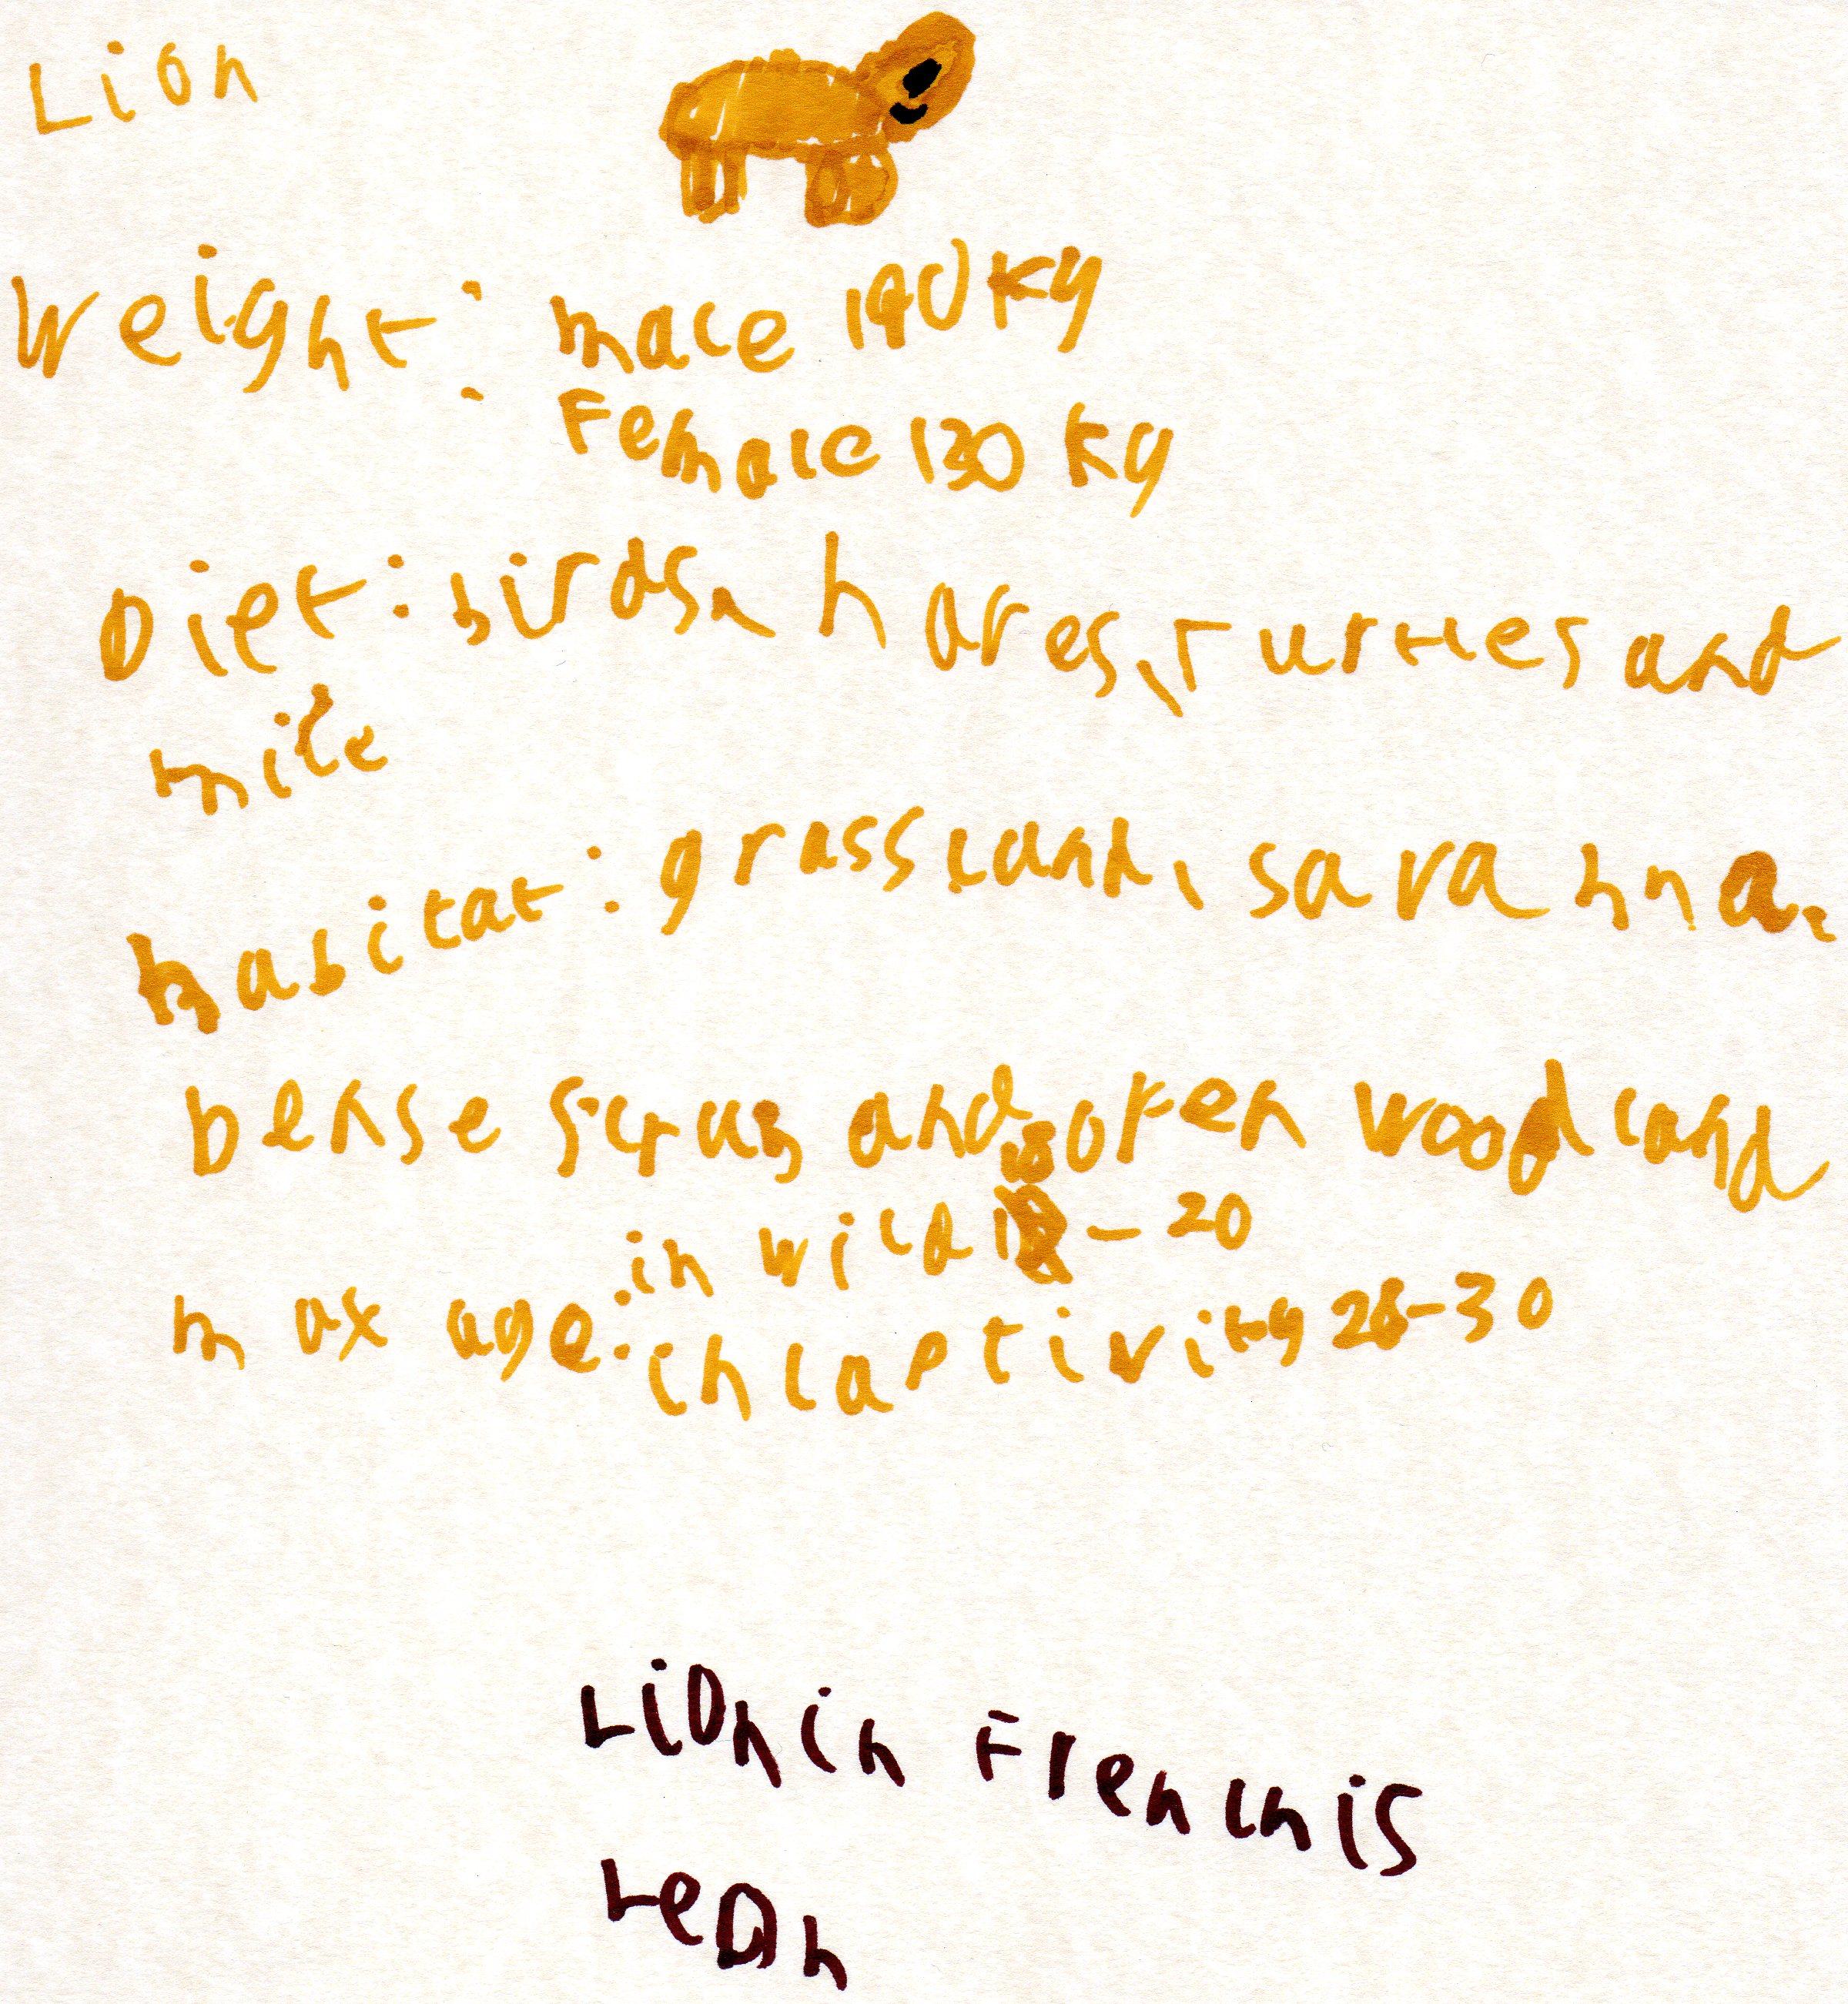 Lion
Weight: male 190 kg
: Female 130 kg
Diet: birds, hares, turtles and
mice
habitat: grassland, savanna,
Dense scrub and open woodland
in wild 18 - 20
max age: in captivity 26-30
Lion in French is
Leon